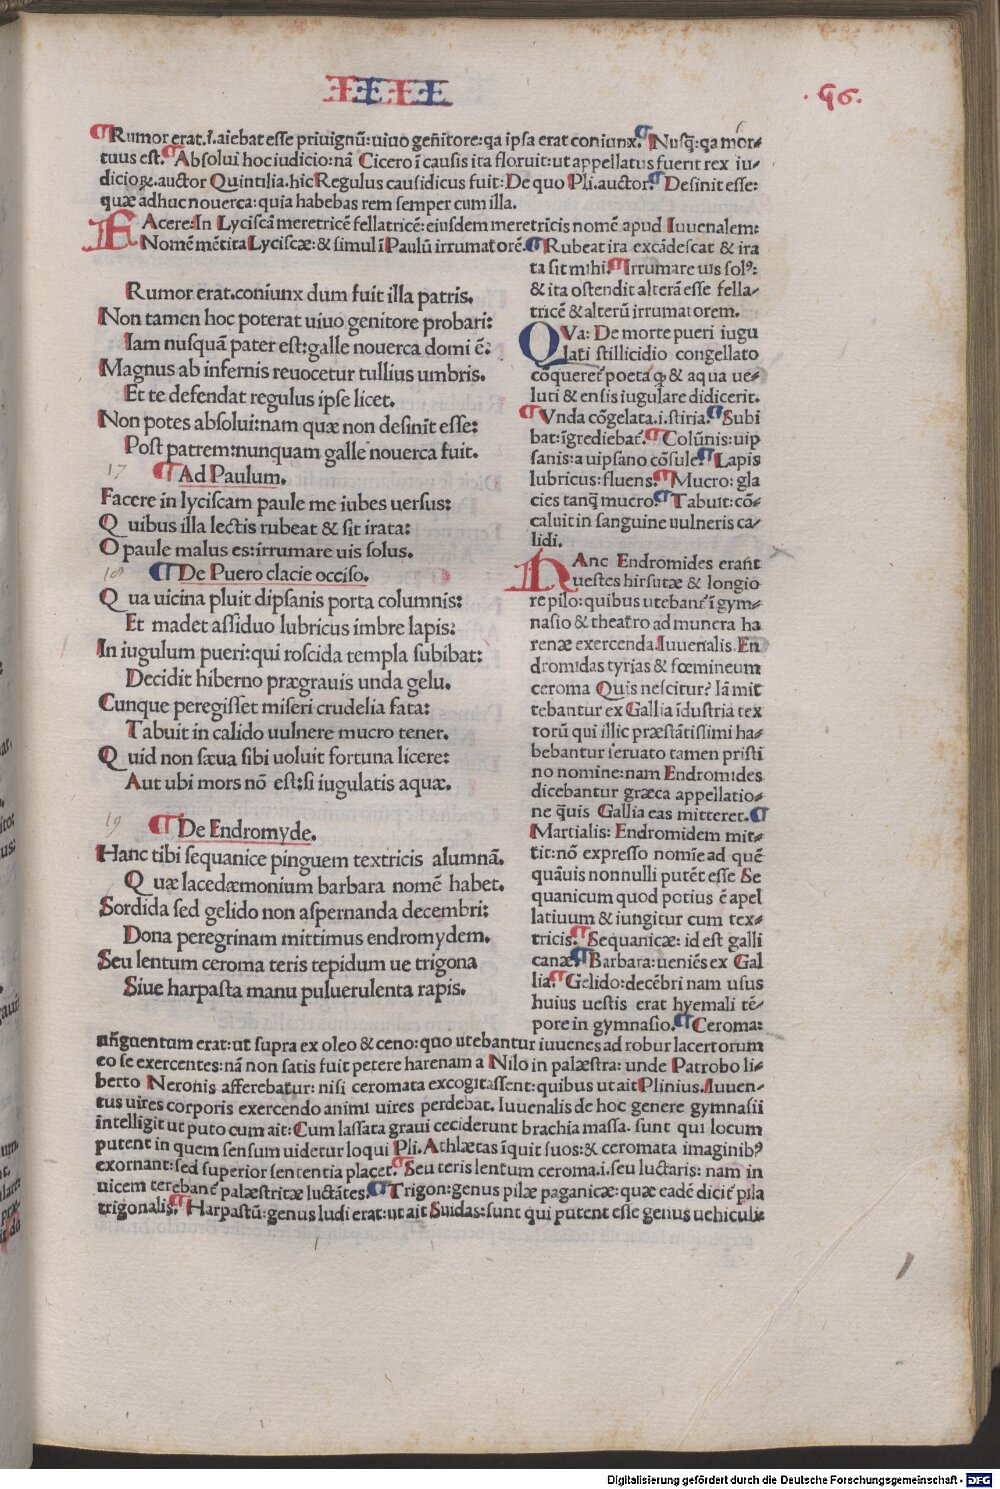 IIII
.96.
¶Rumor erat.i.aiebat esse priuignũ:uiuo geñitore:qa ipsa erat coniunx.¶Nusq̃:qa mor-
tuus est.¶Absolui hoc iudicio:nã Cicero ĩ causis ita floruit:ut appellatus fuerit rex iu-
dicioꝝ.auctor Quintilia.hic Regulus causidicus fuit:De quo Pli.auctor.¶Desinit esse:
quæ adhuc nouerca:quia habebas rem semper cum illa.
FAcere:In Lyciscã meretricẽ fellatricẽ:eiusdem meretricis nomẽ apud Iuuenalem:
Nomẽ mẽtita Lyciscæ:& simul ĩ Paulũ irrumatorẽ.¶Rubeat ira excãdescat & ira
ta sit mihi.¶Irrumare uis solꝰ:
& ita ostendit alterã esse fella-
tricẽ & alterũ irrumatorem.
QVa: De morte pueri iugu
lati stillicidio congellato
cõqueret̃ poeta ꝙ & aqua ue-
luti & ensis iugulare didicerit.
¶Vnda cõgelata.i.stiria.¶Subi
bat:ĩgrediebat̃.¶Colũnis:uip
sanis:a uipsano cõsule.¶Lapis
lubricus:fluens.¶Mucro:gla
cies tanq̃ mucro.¶Tabuit:cõ-
caluit in sanguine uulneris ca-
lidi.
HAnc Endromides erant
uestes hirsutæ & longio
re pilo:quibus utebant̃ ĩ gym-
nasio & theatro ad munera ha
renæ exercenda.Iuuenalis.En
dromidas tyrias & fœmineum
ceroma Quis nescitur? Iã mit
tebantur ex Gallia ĩdustria tex
torũ qui illic præstãtissimi ha-
bebantur seruato tamen pristi
no nomine:nam Endromides
dicebantur græca appellatio-
ne q̃uis Gallia eas mitteret.¶
Martialis: Endromidem mit-
tit:nõ expresso nomĩe ad quẽ
quãuis nonnulli putẽt esse Se
quanicum quod potius ẽ apel
latiuum & iungitur cum tex-
tricis.¶Sequanicæ: id est galli
canæ.¶Barbara:ueniẽs ex Gal
lia.¶Gelido:decẽbri nam usus
huius uestis erat hyemali tẽ-
pore in gymnasio.¶Ceroma:
Rumor erat.coniunx dum fuit illa patris.
Non tamen hoc poterat uiuo genitore probari:
Iam nusquã pater est:galle nouerca domi ẽ.
Magnus ab infernis reuocetur tullius umbris.
Et te defendat regulus ipse licet.
Non potes absolui:nam quæ non desinit esse:
Post patrem:nunquam galle nouerca fuit.
17
¶Ad Paulum.
Facere in lyciscam paule me iubes uersus:
Quibus illa lectis rubeat & sit irata:
O paule malus es:irrumare uis solus.
18
¶De Puero clacie occiso.
Qua uicina pluit dipsanis porta columnis:
Et madet assiduo lubricus imbre lapis:
In iugulum pueri:qui roscida templa subibat:
Decidit hiberno prægrauis unda gelu.
Cunque peregisset miseri crudelia fata:
Tabuit in calido uulnere mucro tener.
Quid non sæua sibi uoluit fortuna licere:
Aut ubi mors nõ est:si iugulatis aquæ.
19
¶De Endromyde.
Hanc tibi sequanice pinguem textricis alumnã.
Quæ lacedæmonium barbara nomẽ habet.
Sordida sed gelido non aspernanda decembri:
Dona peregrinam mittimus endromydem.
Seu lentum ceroma teris tepidum ue trigona
Siue harpasta manu puluerulenta rapis.
unguentum erat:ut supra ex oleo & ceno:quo utebantur iuuenes ad robur lacertorum
eo se exercentes:nã non satis fuit petere harenam a Nilo in palæstra: unde Patrobo li-
berto Neronis afferebatur: nisi ceromata excogitassent:quibus ut ait Plinius.Iuuen-
tus uires corporis exercendo animi uires perdebat. Iuuenalis de hoc genere gymnasii
intelligit ut puto cum ait:Cum lassata graui ceciderunt brachia massa. sunt qui locum
putent in quem sensum uidetur loqui Pli.Athlætas ĩquit suos:& ceromata imaginibꝰ
exornant:sed superior sententia placet.¶Seu teris lentum ceroma.i.seu luctaris: nam in
uicem terebant̃ palæstritæ luctãtes.¶Trigon:genus pilæ paganicæ:quæ eadẽ dicit̃ pila
trigonalis.¶Harpastũ:genus ludi erat:ut ait Suidas:sunt qui putent esse genus uehiculi
Digitalisierung gefördert durch die Deutsche Forschungsgemeinschaft - DFG